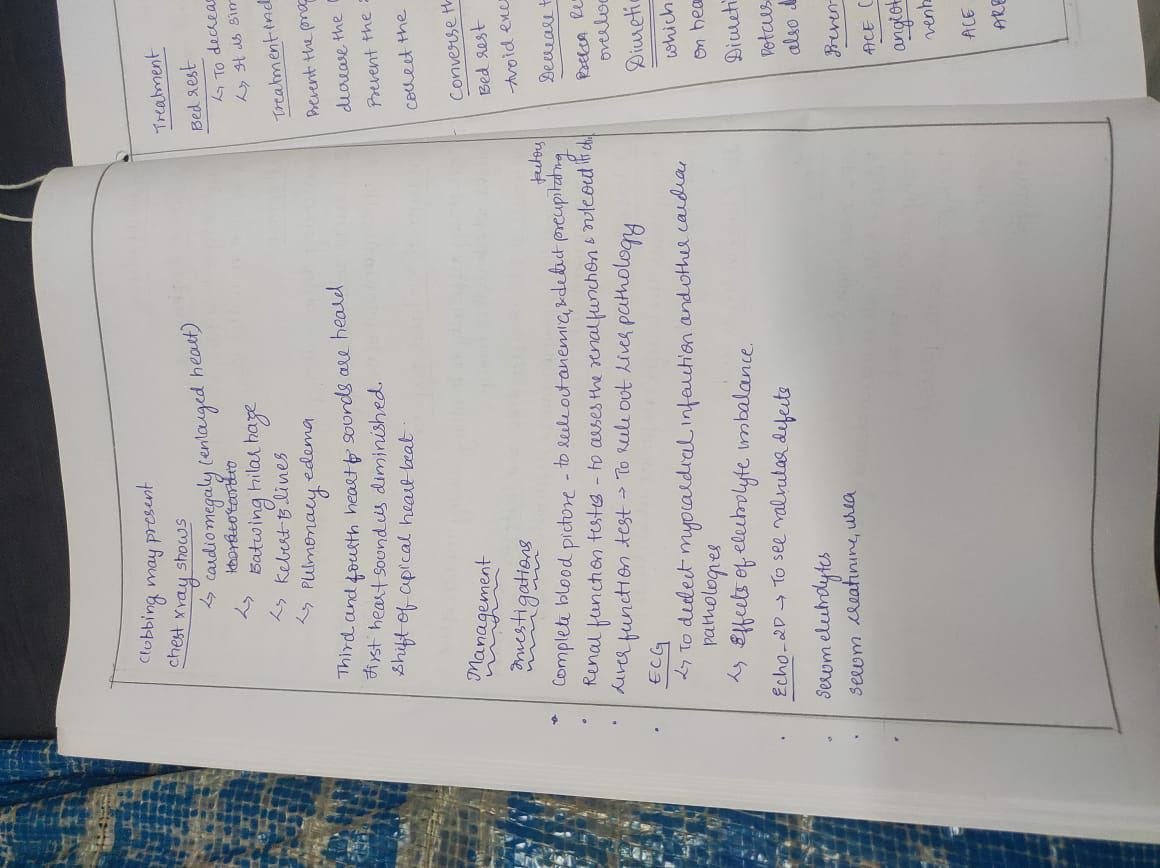 clubbing may present
chest xray shows
↳ cardiomegaly (enlarged heart)
↳ Batwing hilar haze
↳ Kelert B. lines
↳ Pulmonary edema
Third and fourth heart sounds are heard
first heart sound us diminished.
Shift of apical heart beat
Management
Investigations
Complete blood picture - to rule out anemia, & detect precipitating
factors
Renal function tests - to asses the renal function & rule out if
Liver function test → To rule out Liver pathology
ECG
↳ To dectect myocardical infaction and other cardiac
pathologies
↳ Effects of electrolyte imbalance
Echo-2D → To see valvular defects
Serum electrolytes
serum creatinine, urea
Treatment
Bed rest
↳ To decreas
↳ It is sim
Treatment ind
Prevent the prog
decrease the
Prevent the
correct the
Converse th
Bed rest
Avoid exe
Decrease t
overloa
Diuretic
which
on hea
Diureti
Potass
also d
Preven
ACE
angiot
vent
ACE
ARB